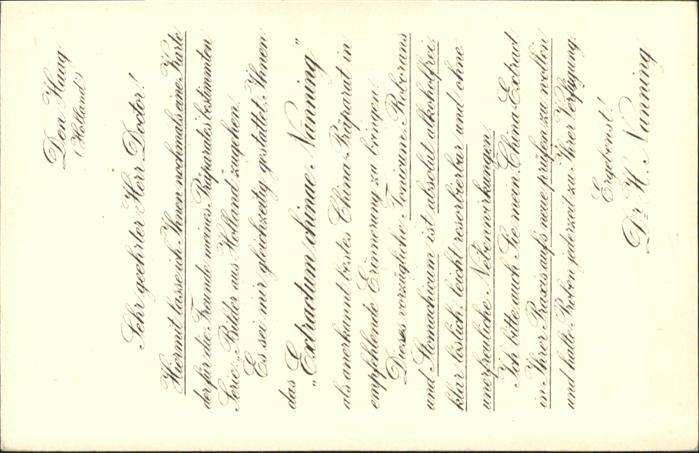 Den Haag
(Holland)
Sehr geehrter Herr Doctor!
Hiermit lasse ich Ihnen nochmals eine Karte
der für die Freunde meines Präparates bestimmten
Serie: Bilder aus Holland zugehen.
Es sei mir gleichzeitig gestattet, Ihnen
das
„Extractum chinae Nanning”
als anerkannt bestes China-Präparat in
empfehlende Erinnerung zu bringen.
Dieses vorzügliche Tonicum, Roborans
und Stomachicum ist absolut alkoholfrei,
klar löslich, leicht resorbierbar und ohne
unerfreuliche Nebenwirkungen.
Ich bitte auch Sie mein China-Extract
in Ihrer Praxis aufs neue prüfen zu wollen
und halte Proben jederzeit zu Ihrer Verfügung.
Ergebenst!
Dr. H. Nanning